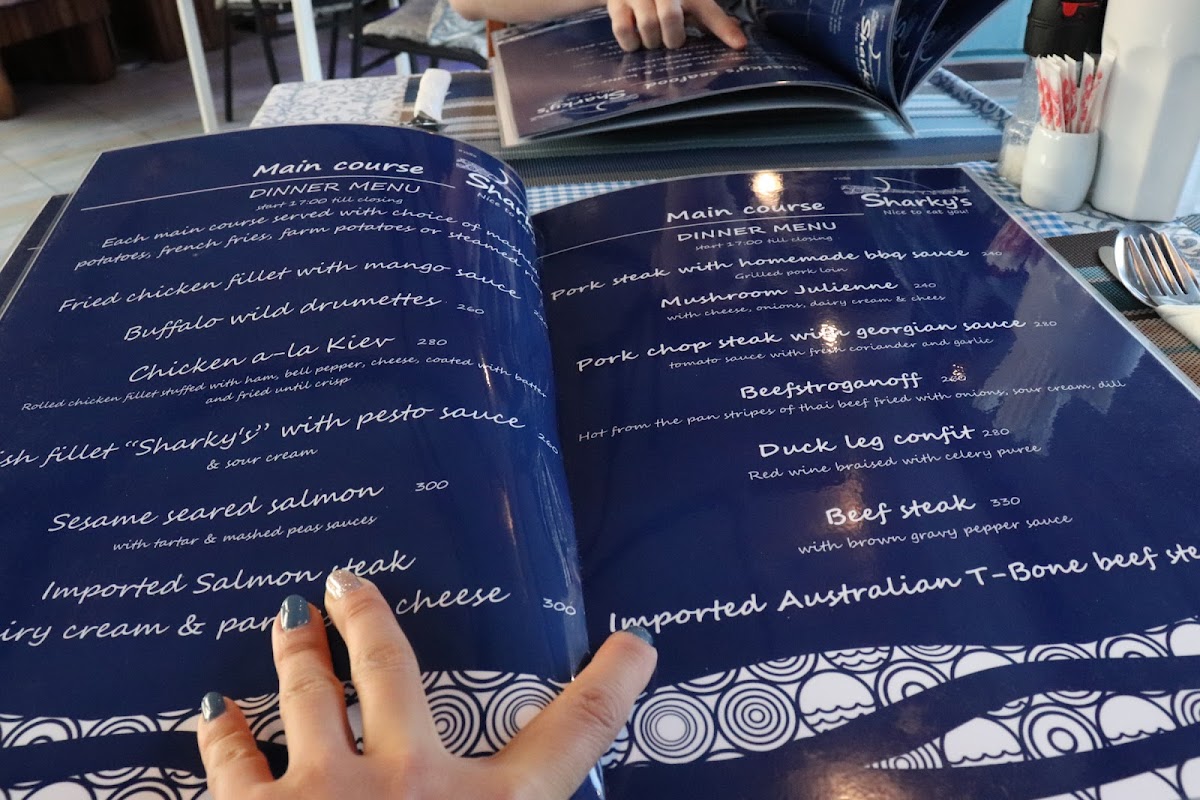 Main course
DINNER MENU
start 17:00 till closing
Each main course served with choice of
potatoes, french fries, farm potatoes or steamed
Fried chicken fillet with mango sauce
Buffalo wild drumettes 260
Chicken a-la Kiev 280
Rolled chicken fillet stuffed with ham, bell pepper, cheese, coated with batter
and fried until crisp
fillet "Sharky's" with pesto sauce 260
& sour cream
Sesame seared salmon 300
with tartar & mashed peas sauces
Imported Salmon steak
cream & cheese 300
Nice to
Main course
DINNER MENU
start 17:00 till closing
Sharky's
Nice to eat you!
Pork steak with homemade bbq sauce 240
Grilled pork loin
Mushroom Julienne 240
with cheese, onions, dairy cream & chees
Pork chop steak with georgian sauce 280
tomato sauce with fresh coriander and garlic
Beefstroganoff 260
Hot from the pan stripes of thai beef fried with onions, sour cream, dill
Duck leg confit 280
Red wine braised with celery puree
Beef steak 330
with brown gravy pepper sauce
Imported Australian T-Bone beef
Sharky's